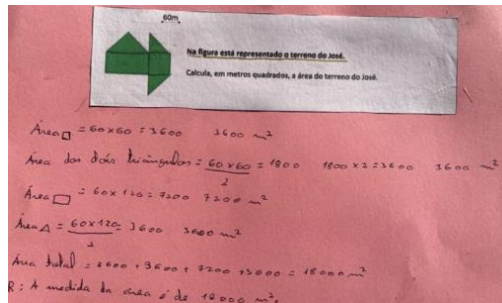 60m
Na figura está representado o terreno do José.
Calcula, em metros quadrados, a área do terreno do José.
Área□ = 60×60 = 3600 3600 m²
Área dos dois triângulos = 60×60/2 = 1800 1800×2=3600 3600 m²
Área▭ = 60×120 = 7200 7200 m²
Área△ = 60×120/2 = 3600 3600 m²
Área total = 3600 + 3600 + 7200 + 3600 = 18000 m²
R: A medida da área é de 18000 m².